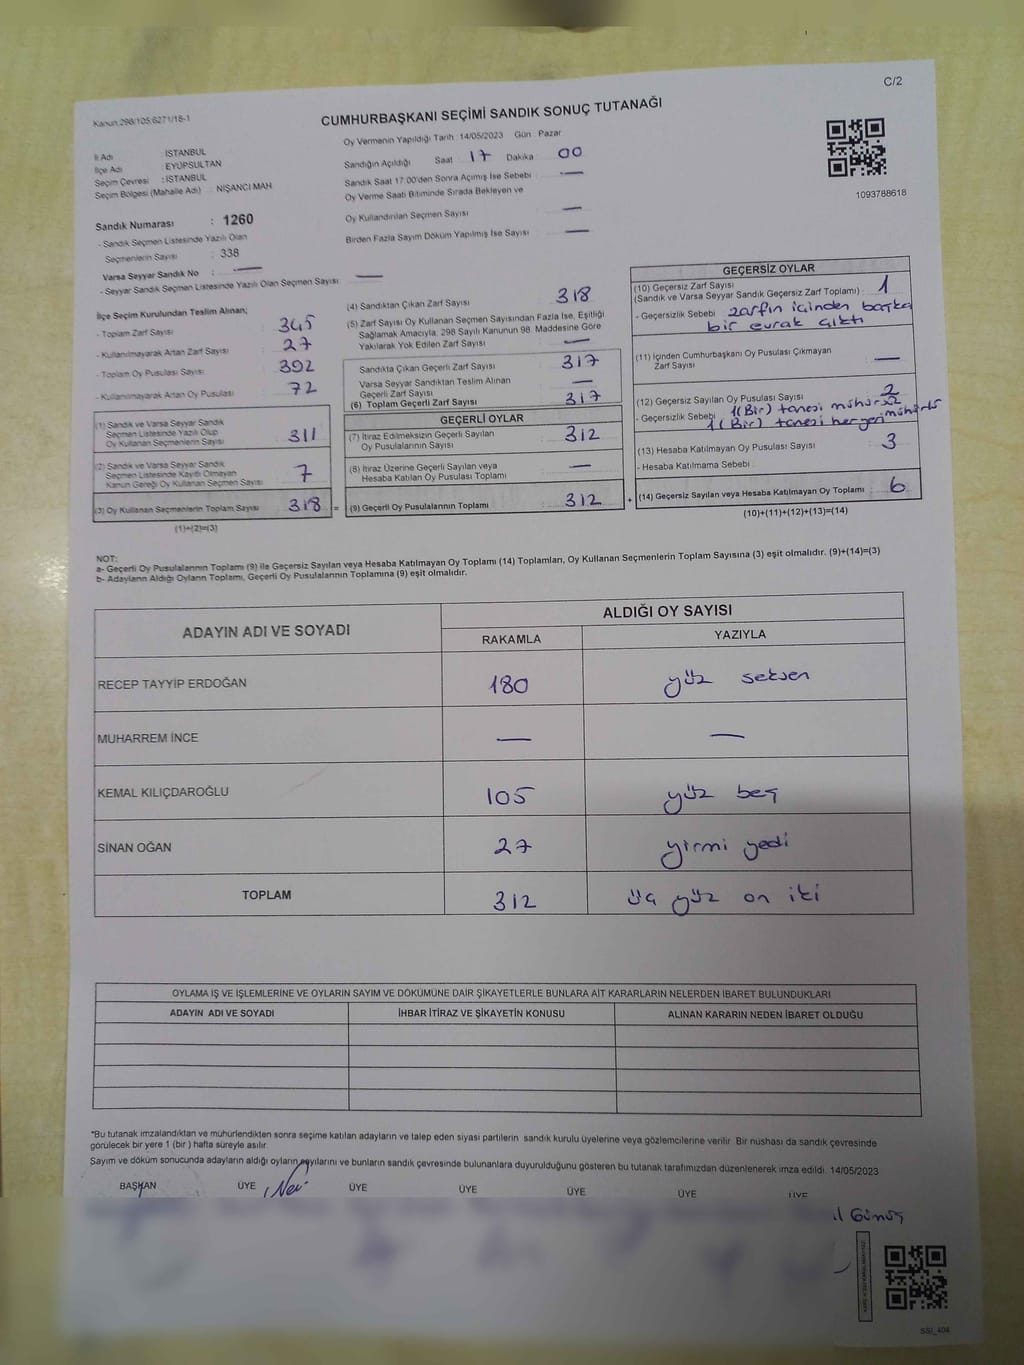 C/2
Kanun 298/105,6271/18-1
CUMHURBAŞKANI SEÇİMİ SANDIK SONUÇ TUTANAĞI
Oy Vermenin Yapıldığı Tarih :14/05/2023 Gün : Pazar
İl Adı : İSTANBUL
İlçe Adı : EYÜPSULTAN
Seçim Çevresi : İSTANBUL
Seçim Bölgesi (Mahalle Adı) : NİŞANCI MAH
Sandığın Açıldığı Saat 17 Dakika 00
Sandık Saat 17:00'den Sonra Açımış İse Sebebi : —
Oy Verme Saati Bitiminde Sırada Bekleyen ve
Oy Kullandırılan Seçmen Sayısı : —
Birden Fazla Sayım Döküm Yapılmış İse Sayısı : —
1093788618
Sandık Numarası : 1260
- Sandık Seçmen Listesinde Yazılı Olan
Seçmenlerin Sayısı : 338
Varsa Seyyar Sandık No : —
- Seyyar Sandık Seçmen Listesinde Yazılı Olan Seçmen Sayısı : —
İlçe Seçim Kurulundan Teslim Alınan;
- Toplam Zarf Sayısı : 345
- Kullanılmayarak Artan Zarf Sayısı : 27
- Toplam Oy Pusulası Sayısı : 392
- Kullanılmayarak Artan Oy Pusulası : 72
(1) Sandık ve Varsa Seyyar Sandık
Seçmen Listesinde Yazılı Olup
Oy Kullanan Seçmenlerin Sayısı : 311
(2) Sandık ve Varsa Seyyar Sandık
Seçmen Listesinde Kayıtlı Olmayan
Kanun Gereği Oy Kullanan Seçmen Sayısı : 7
(3) Oy Kullanan Seçmenlerin Toplam Sayısı : 318 =
(1)+(2)=(3)
(4) Sandıktan Çıkan Zarf Sayısı : 318
(5) Zarf Sayısı Oy Kullanan Seçmen Sayısından Fazla İse, Eşitliği
Sağlamak Amacıyla, 298 Sayılı Kanunun 98. Maddesine Göre
Yakılarak Yok Edilen Zarf Sayısı : —
Sandıkta Çıkan Geçerli Zarf Sayısı : 317
Varsa Seyyar Sandıktan Teslim Alınan
Geçerli Zarf Sayısı : —
(6) Toplam Geçerli Zarf Sayısı : 317
GEÇERLİ OYLAR
(7) İtiraz Edilmeksizin Geçerli Sayılan
Oy Pusulalarının Sayısı : 312
(8) İtiraz Üzerine Geçerli Sayılan veya
Hesaba Katılan Oy Pusulası Toplamı : —
(9) Geçerli Oy Pusulalarının Toplamı : 312 +
GEÇERSİZ OYLAR
(10) Geçersiz Zarf Sayısı
(Sandık ve Varsa Seyyar Sandık Geçersiz Zarf Toplamı) : 1
- Geçersizlik Sebebi : zarfın içinden başka
bir evrak çıktı
(11) İçinden Cumhurbaşkanı Oy Pusulası Çıkmayan
Zarf Sayısı : —
(12) Geçersiz Sayılan Oy Pusulası Sayısı : 2
- Geçersizlik Sebebi : 1(Bir) tanesi mühürsüz
1(Bir) tanesi heryeri mühürlü
(13) Hesaba Katılmayan Oy Pusulası Sayısı : 3
- Hesaba Katılmama Sebebi :
(14) Geçersiz Sayılan veya Hesaba Katılmayan Oy Toplamı : 6
(10)+(11)+(12)+(13)=(14)
NOT:
a- Geçerli Oy Pusulalarının Toplamı (9) ile Geçersiz Sayılan veya Hesaba Katılmayan Oy Toplamı (14) Toplamları, Oy Kullanan Seçmenlerin Toplam Sayısına (3) eşit olmalıdır. (9)+(14)=(3)
b- Adayların Aldığı Oyların Toplamı, Geçerli Oy Pusulalarının Toplamına (9) eşit olmalıdır.
ADAYIN ADI VE SOYADI
ALDIĞI OY SAYISI
RAKAMLA YAZIYLA
RECEP TAYYİP ERDOĞAN 180 yüz seksen
MUHARREM İNCE — —
KEMAL KILIÇDAROĞLU 105 yüz beş
SİNAN OĞAN 27 yirmi yedi
TOPLAM 312 üç yüz on iki
OYLAMA İŞ VE İŞLEMLERİNE VE OYLARIN SAYIM VE DÖKÜMÜNE DAİR ŞİKAYETLERLE BUNLARA AİT KARARLARIN NELERDEN İBARET BULUNDUKLARI
ADAYIN ADI VE SOYADI İHBAR İTİRAZ VE ŞİKAYETİN KONUSU ALINAN KARARIN NEDEN İBARET OLDUĞU
*Bu tutanak imzalandıktan ve mühürlendikten sonra seçime katılan adayların ve talep eden siyasi partilerin sandık kurulu üyelerine veya gözlemcilerine verilir. Bir nüshası da sandık çevresinde
görülecek bir yere 1 (bir ) hafta süreyle asılır.
Sayım ve döküm sonucunda adayların aldığı oyların sayılarını ve bunların sandık çevresinde bulunanlara duyurulduğunu gösteren bu tutanak tarafımızdan düzenlenerek imza edildi. 14/05/2023
BAŞKAN ÜYE ÜYE ÜYE ÜYE ÜYE ÜYE